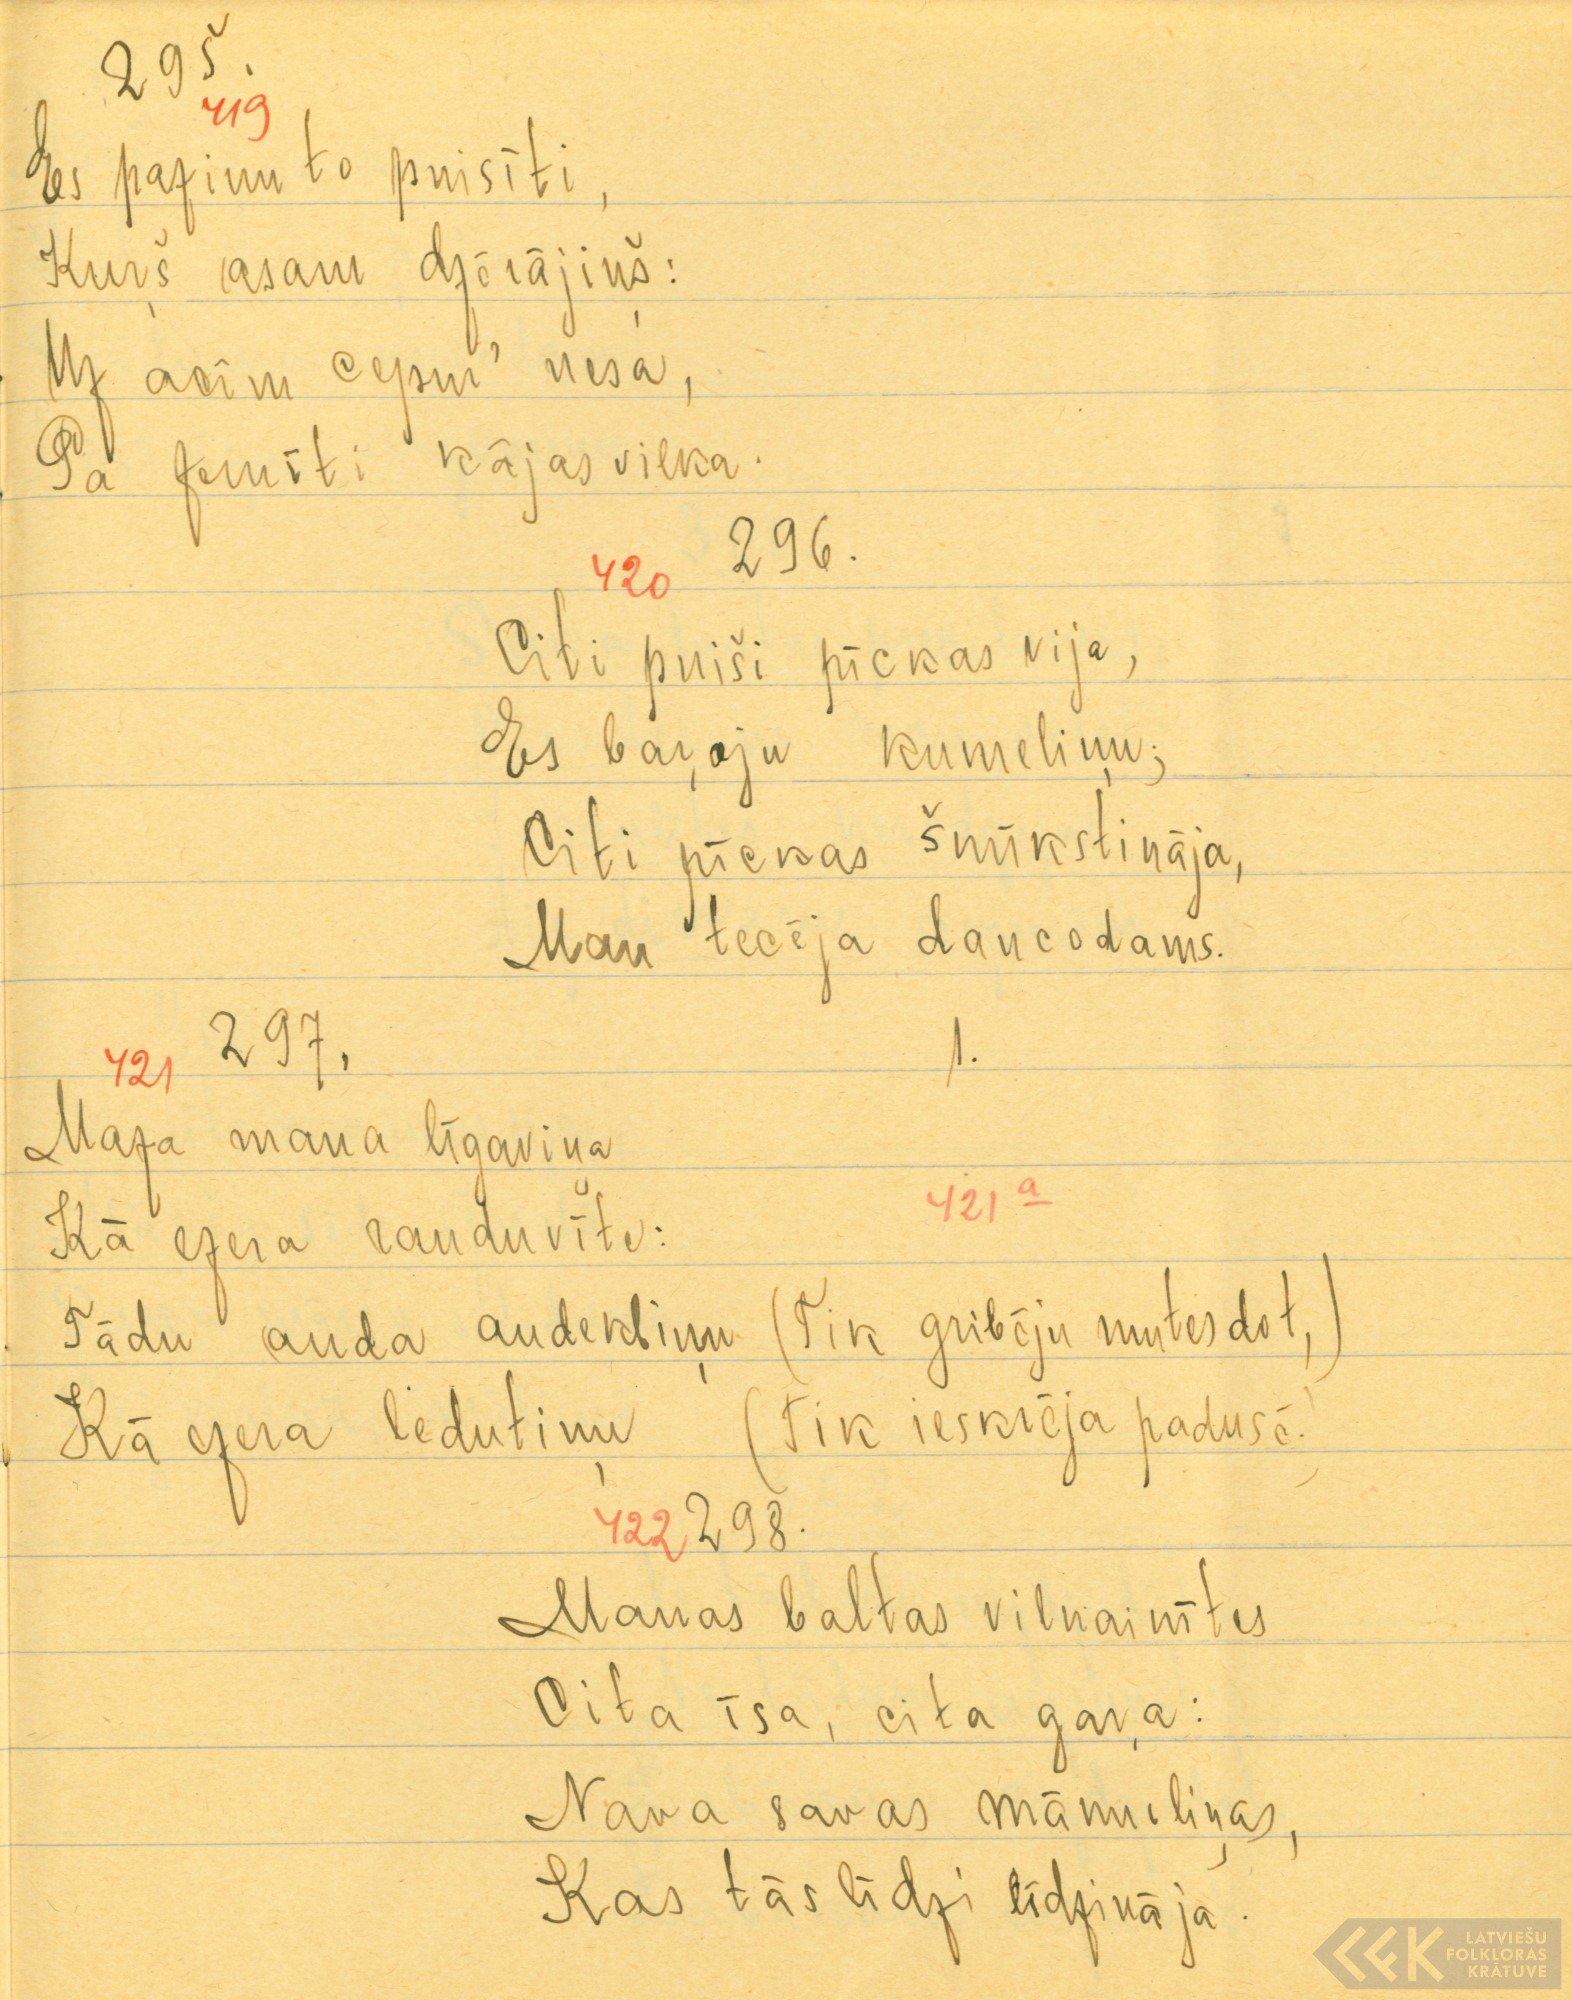 295.
419
Es pazinu to puisīti,
Kuŗš asam dzērājiņš:
Uz acīm cepur' nesa,
Pa zemīti kājas vilka.
420 296.
Citi puiši pīckas vija,
Es baŗoju kumeliņu;
Citi pīckas šmīkstināja,
Man tecēja dancodams.
421 297. 1.
Maza mana līgaviņa
Kā ezera rauduvīte: 421 a
Tādu auda audekliņu (Tik gribēju mutes dot,)
Kā ezera ledutiņu (Tik ieskrēja padusē.)
422 298.
Manas baltas vilnainītes
Cita īsa, cita gaŗa:
Nava savas māmeliņas,
Kas tās līdzi līdzināja.
LATVIEŠU
FOLKLORAS
KRĀTUVE